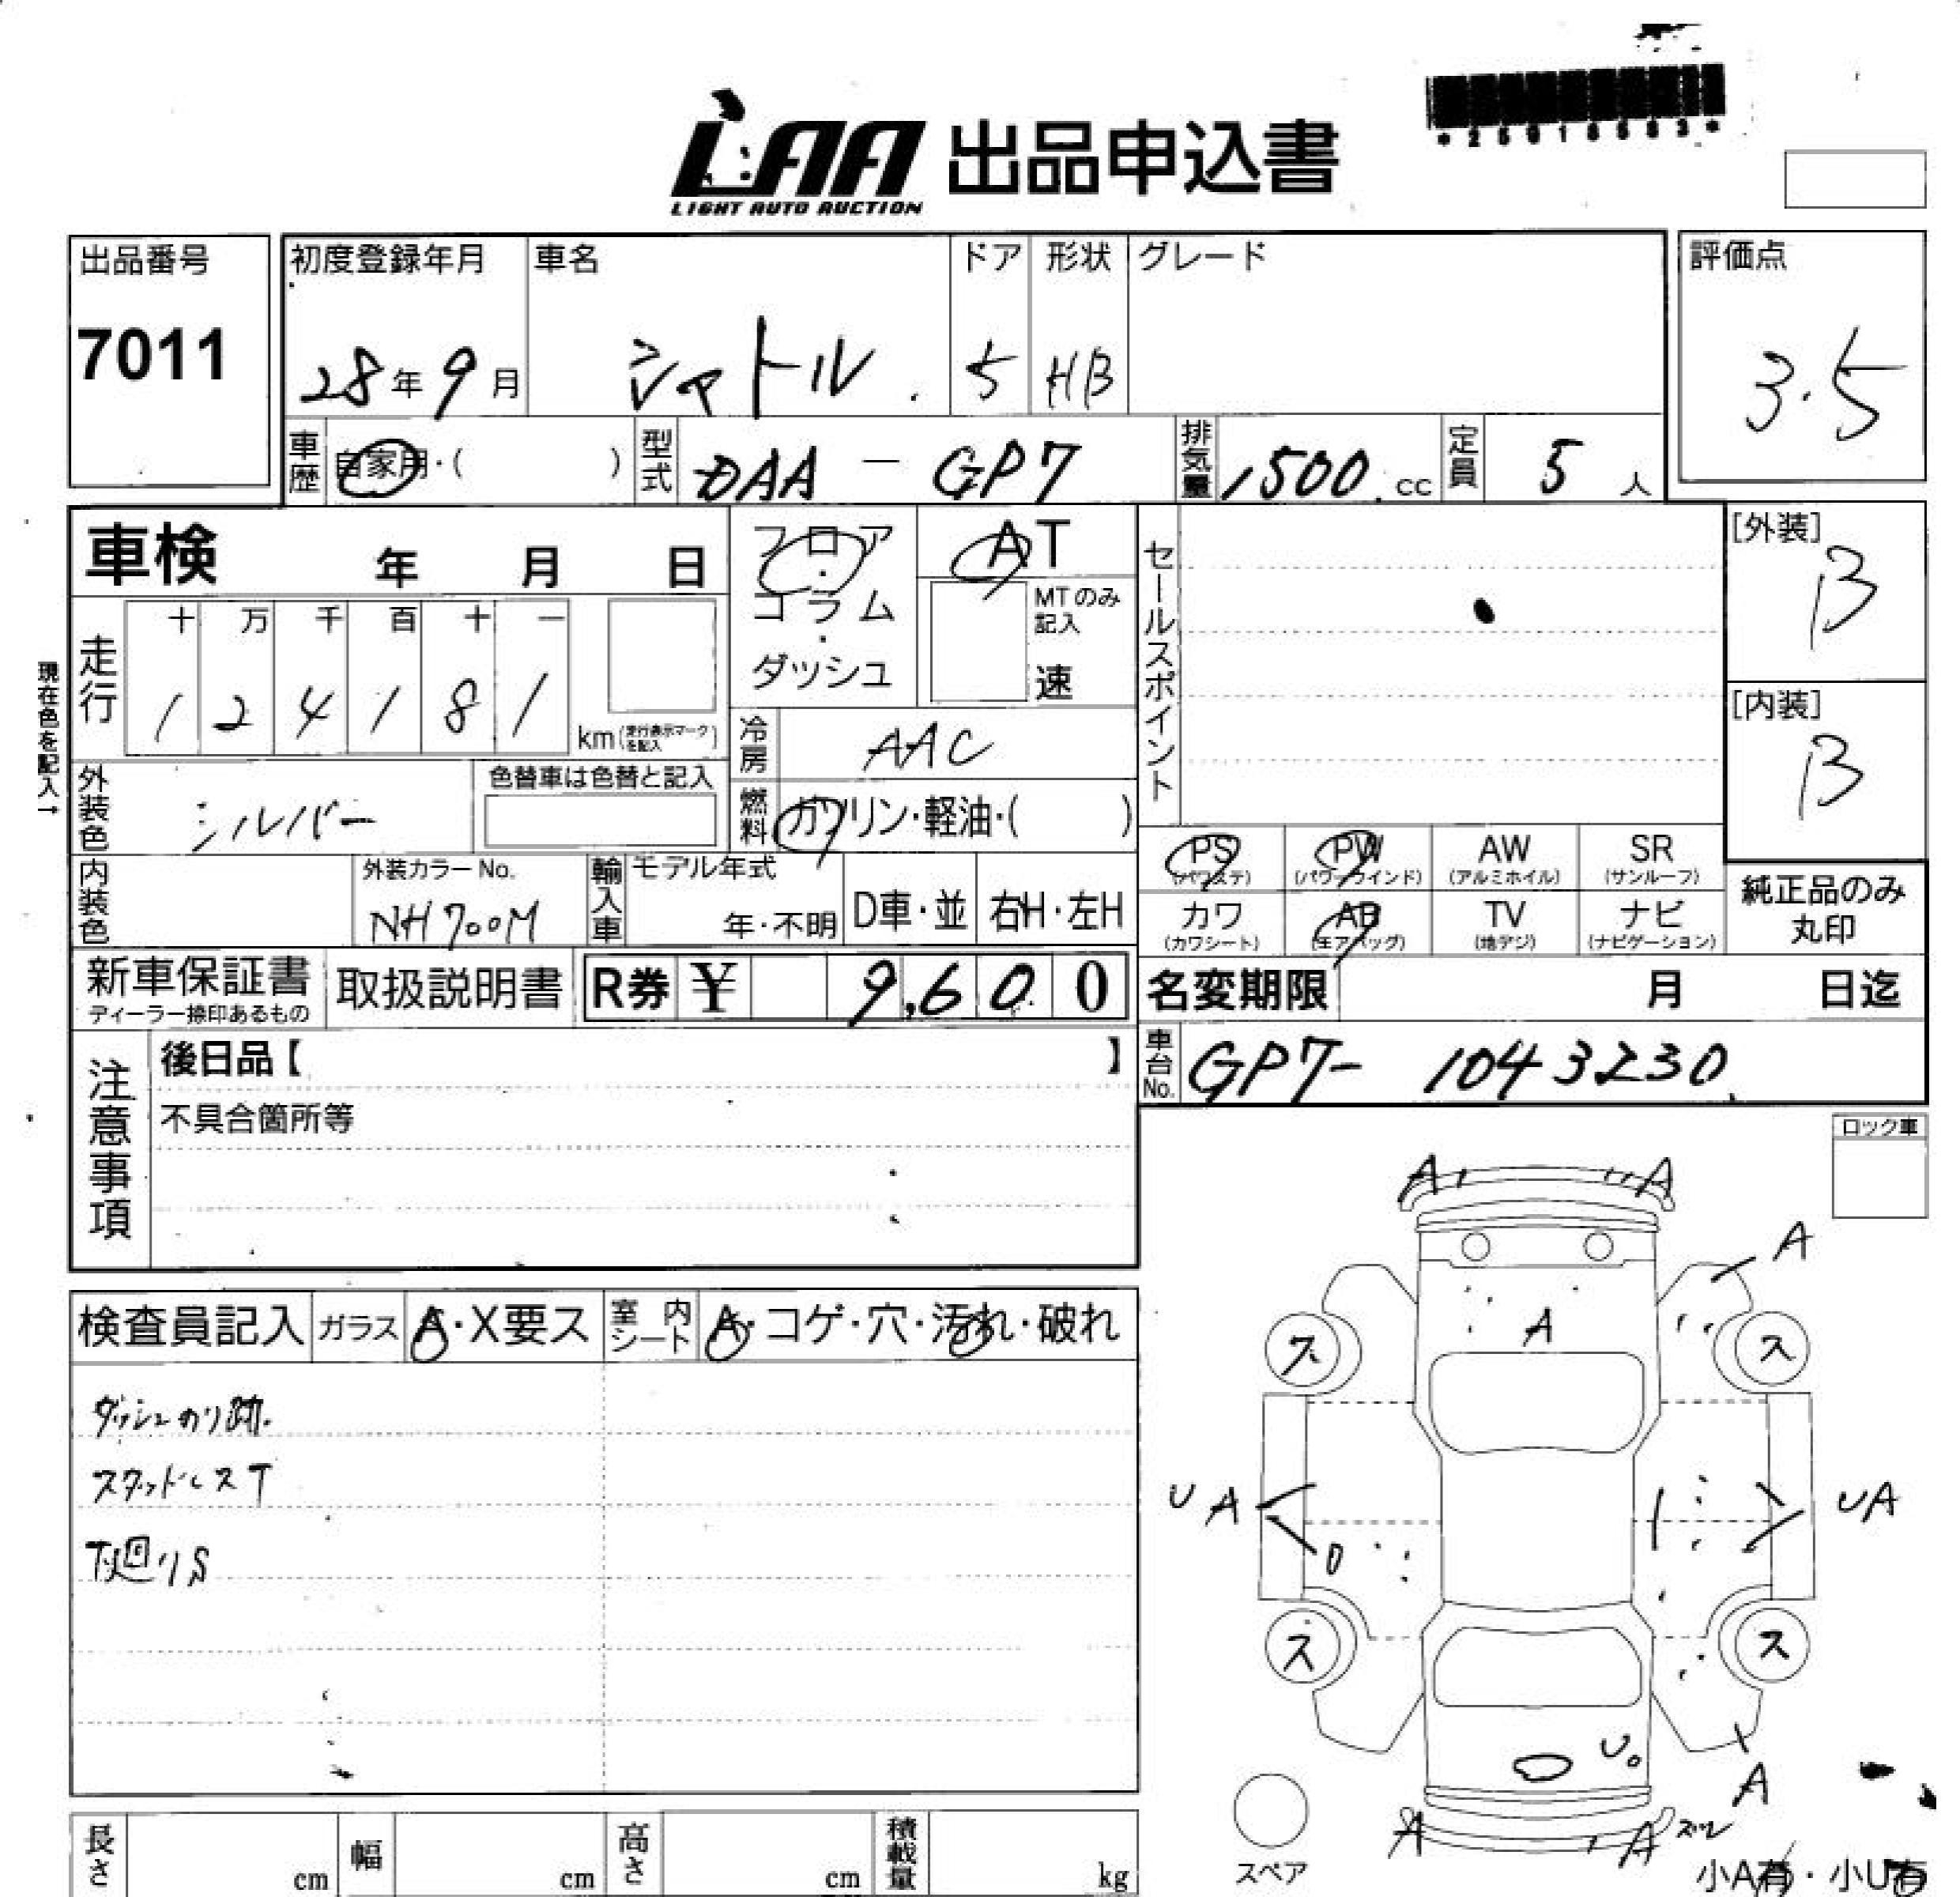 LAA 出品申込書
LIGHT AUTO AUCTION
出品番号
7011
初度登録年月 車名 ドア 形状 グレード
28年9月 シャトル 5 HB
評価点
3.5
車歴 自家用・( ) 型式 DAA - GP7 排気量 1500.cc 定員 5人
車検 年 月 日
フロア・コラム・ダッシュ
AT
MTのみ記入
速
セールスポイント
[外装]
B
[内装]
B
現在色を記入→
走行 十 万 千 百 十 一
1 2 4 1 8 1 km(走行表示マークを記入)
冷房 AAC
外装色 シルバー
色替車は色替と記入
燃料 ガソリン・軽油・( )
内装色
外装カラーNo.
NH700M
輸入車 モデル年式
年・不明 D車・並 右H・左H
PS (パワステ) PW (パワーウインド) AW (アルミホイル) SR (サンルーフ)
カワ (カワシート) AB (エアバッグ) TV (地デジ) ナビ (ナビゲーション)
純正品のみ
丸印
新車保証書
ディーラー捺印あるもの
取扱説明書
R券 ¥ 9,600
名変期限 月 日迄
車台No. GP7- 1043230
注意事項
後日品【 】
不具合箇所等
ロック車
検査員記入 ガラス A・X要ス 室内シート A・コゲ・穴・汚れ・破れ
ダッシュのり跡.
スタッドレスT
下廻りS
A A
A
A
ス ス
UA UA
ス ス
U
A
A A スリ
スペア
小A有・小U有
長さ cm 幅 cm 高さ cm 積載量 kg